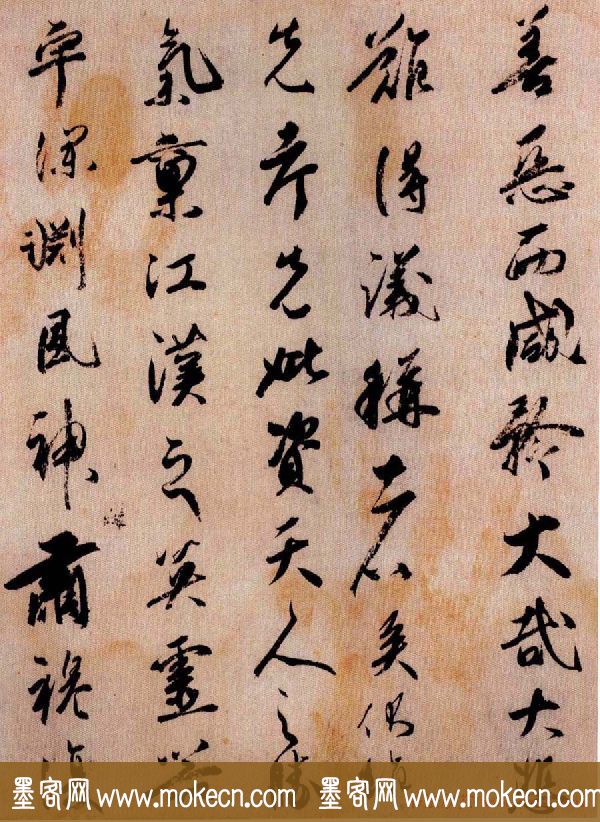 善惡而咸矜大哉大
難得議稱者矣
先考先妣資天人之勝
氣稟江漢之英靈器
宇深淵風神肅穆
墨客网 www.mokecn.com 墨客网 www.mokecn.com